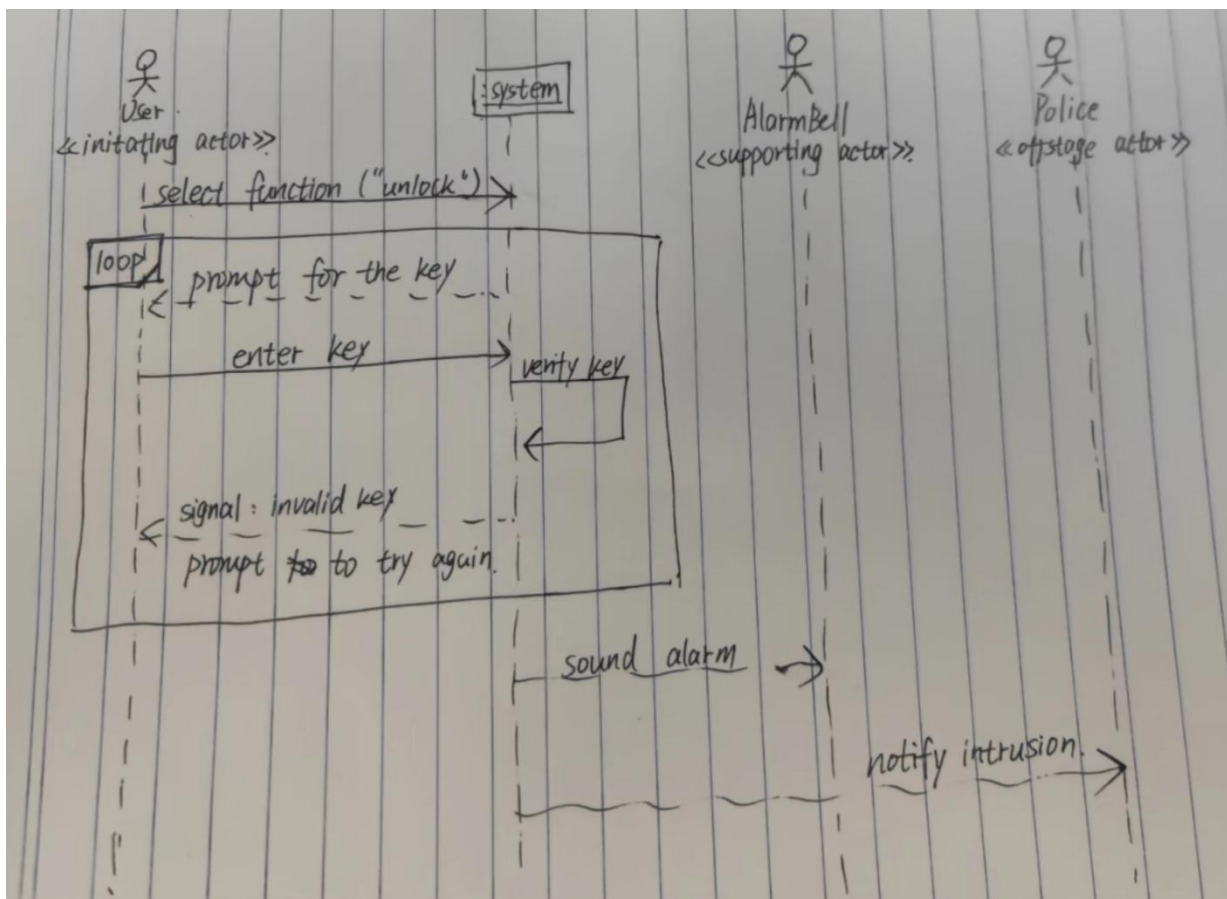 User
<<initating actor>>
:system
AlarmBell
<<supporting actor>>
Police
<<offstage actor>>
select function ("unlock")
loop
prompt for the key
enter key
verify key
signal : invalid key
prompt to try again.
sound alarm
notify intrusion.